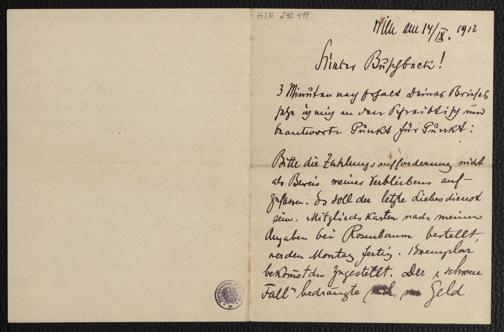 H.I.N. 240.499
Wien am 14/IX. 1912
Lieber Buschbeck!
3 Minuten nach Erhalt Deines Briefes
setze ich mich an den Schreibtisch und
beantworte Punkt für Punkt:
Bitte die Zahlungsaufforderung nicht
als Beweis meines Verbleibens auf-
zufassen. Es soll der letzte Liebesdienst
sein. Mitglieds Karten nach meinen
Angaben bei Rosenbaum bestellt,
werden Montag fertig. 1 Exemplar
bekommst du zugestellt. Der "schöne
Fall" bedrängte Geld